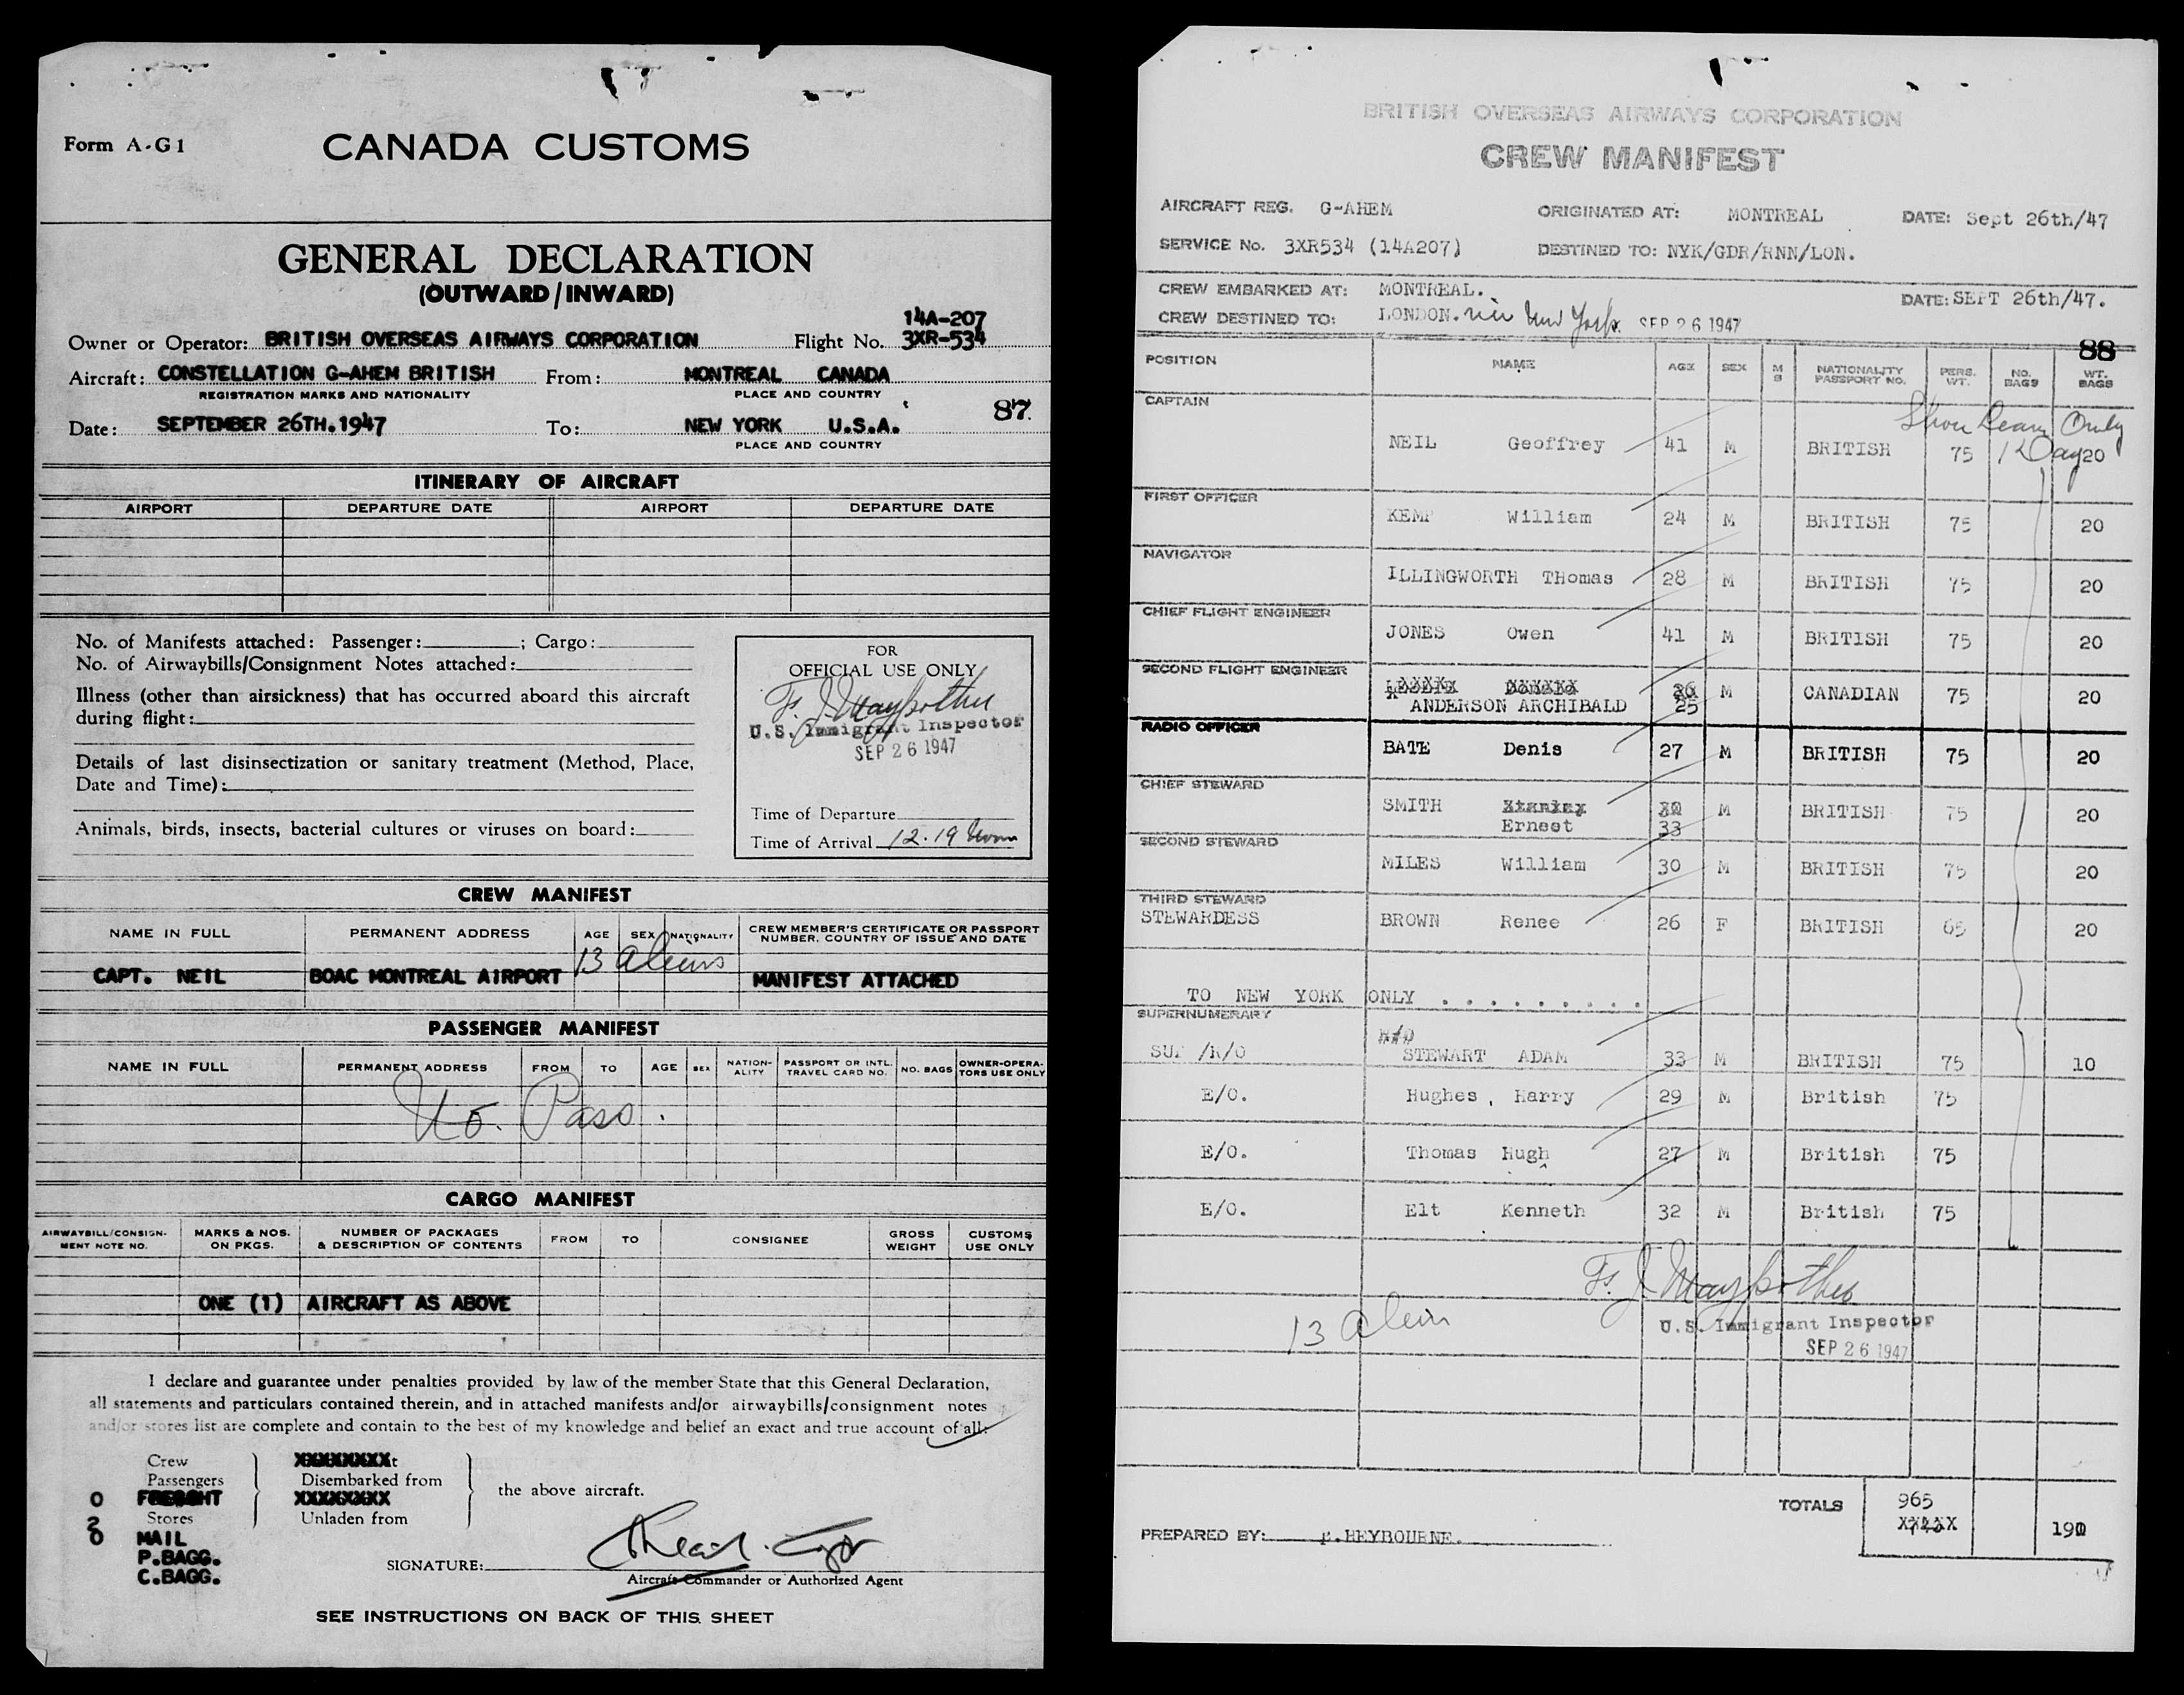 Form A-G1
CANADA CUSTOMS
GENERAL DECLARATION
(OUTWARD/INWARD)
14A-207
Owner or Operator: BRITISH OVERSEAS AIRWAYS CORPORATION Flight No. 3XR-534
Aircraft: CONSTELLATION G-AHEM BRITISH From: MONTREAL CANADA
REGISTRATION MARKS AND NATIONALITY PLACE AND COUNTRY
87.
Date: SEPTEMBER 26TH.1947 To: NEW YORK U.S.A.
PLACE AND COUNTRY
ITINERARY OF AIRCRAFT
AIRPORT DEPARTURE DATE AIRPORT DEPARTURE DATE
No. of Manifests attached: Passenger: ; Cargo:
No. of Airwaybills/Consignment Notes attached:
Illness (other than airsickness) that has occurred aboard this aircraft
during flight:
Details of last disinsectization or sanitary treatment (Method, Place,
Date and Time):
Animals, birds, insects, bacterial cultures or viruses on board:
FOR
OFFICIAL USE ONLY
U.S. Immigrant Inspector
SEP 26 1947
Time of Departure
Time of Arrival 12.19
CREW MANIFEST
NAME IN FULL PERMANENT ADDRESS AGE SEX NATIONALITY CREW MEMBER'S CERTIFICATE OR PASSPORT
NUMBER, COUNTRY OF ISSUE AND DATE
13 aliens
CAPT. NEIL BOAC MONTREAL AIRPORT MANIFEST ATTACHED
PASSENGER MANIFEST
NAME IN FULL PERMANENT ADDRESS FROM TO AGE SEX NATION-
ALITY PASSPORT OR INTL.
TRAVEL CARD NO. NO. BAGS OWNER-OPERA-
TORS USE ONLY
No. Pass.
CARGO MANIFEST
AIRWAYBILL/CONSIGN-
MENT NOTE NO. MARKS & NOS.
ON PKGS. NUMBER OF PACKAGES
& DESCRIPTION OF CONTENTS FROM TO CONSIGNEE GROSS
WEIGHT CUSTOMS
USE ONLY
ONE (1) AIRCRAFT AS ABOVE
I declare and guarantee under penalties provided by law of the member State that this General Declaration,
all statements and particulars contained therein, and in attached manifests and/or airwaybills/consignment notes
and/or stores list are complete and contain to the best of my knowledge and belief an exact and true account of all:
Crew XXXXXXXXt
Passengers Disembarked from
the above aircraft.
0 FREIGHT XXXXXXXX
2 Stores Unladen from
0 MAIL
P.BAGG.
C.BAGG.
SIGNATURE:
Aircraft Commander or Authorized Agent
SEE INSTRUCTIONS ON BACK OF THIS SHEET
BRITISH OVERSEAS AIRWAYS CORPORATION
CREW MANIFEST
AIRCRAFT REG. G-AHEM ORIGINATED AT: MONTREAL DATE: Sept 26th/47
SERVICE No. 3XR534 (14A207) DESTINED TO: NYK/GDR/RNN/LON.
CREW EMBARKED AT: MONTREAL. DATE: SEPT 26th/47.
CREW DESTINED TO: LONDON. via New York SEP 26 1947
88
POSITION NAME AGE SEX M
S NATIONALITY
PASSPORT NO. PERS.
WT. NO.
BAGS WT.
BAGS
Only
1 Day
CAPTAIN
NEIL Geoffrey 41 M BRITISH 75 20
FIRST OFFICER
KEMP William 24 M BRITISH 75 20
NAVIGATOR
ILLINGWORTH THomas 28 M BRITISH 75 20
CHIEF FLIGHT ENGINEER
JONES Owen 41 M BRITISH 75 20
SECOND FLIGHT ENGINEER
ANDERSON ARCHIBALD 25 M CANADIAN 75 20
RADIO OFFICER
BATE Denis 27 M BRITISH 75 20
CHIEF STEWARD
SMITH Stanley M BRITISH 75 20
Ernest 33
SECOND STEWARD
MILES William 30 M BRITISH 75 20
THIRD STEWARD
STEWARDESS BROWN Renee 26 F BRITISH 65 20
TO NEW YORK ONLY . . . . . . . . .
SUPERNUMERARY
SUP /R/O STEWART ADAM 33 M BRITISH 75 10
E/O. Hughes, Harry 29 M British 75
E/O. Thomas Hugh 27 M British 75
E/O. Elt Kenneth 32 M British 75
13 alien
U.S. Immigrant Inspector
SEP 26 1947
TOTALS 965 190
PREPARED BY: HEYBOURNE.